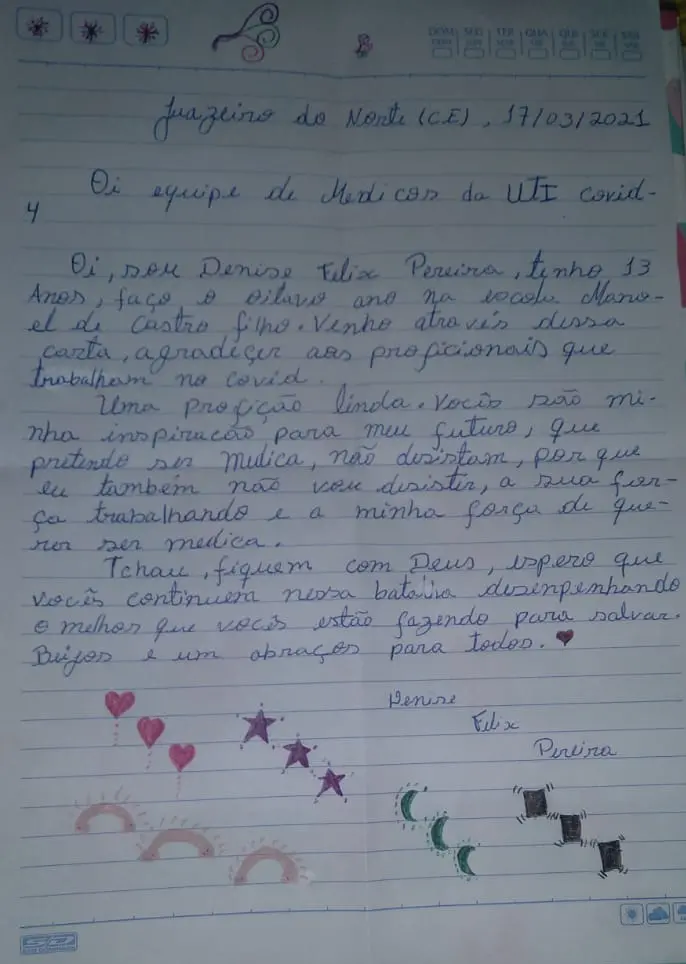 DOM SEG TER QUA QUI SEX SAB
Juazeiro do Norte (CE), 17/03/2021
Oi equipe de Medicos da UTI covid-
4
Oi, sou Denise Felix Pereira, tenho 13
Anos, faço o oitavo ano na escola Mano-
el de Castro filho. Venho através dessa
carta, agradeçer aos proficionais que
trabalham no covid.
Uma profição linda. Vocês são mi-
nha inspiracão para meu futuro, que
pretendo ser medica, não desistam, por que
eu também não vou desistir, a sua for-
ça trabalhando e a minha força de que-
rer ser medica.
Tchau, fiquem com Deus, espero que
vocês continuem nessa batalha desinpenhando
o melhor que vocês estão fazendo para salvar.
Beijos e um abraços para todos.
Denise
Felix
Pereira
SD